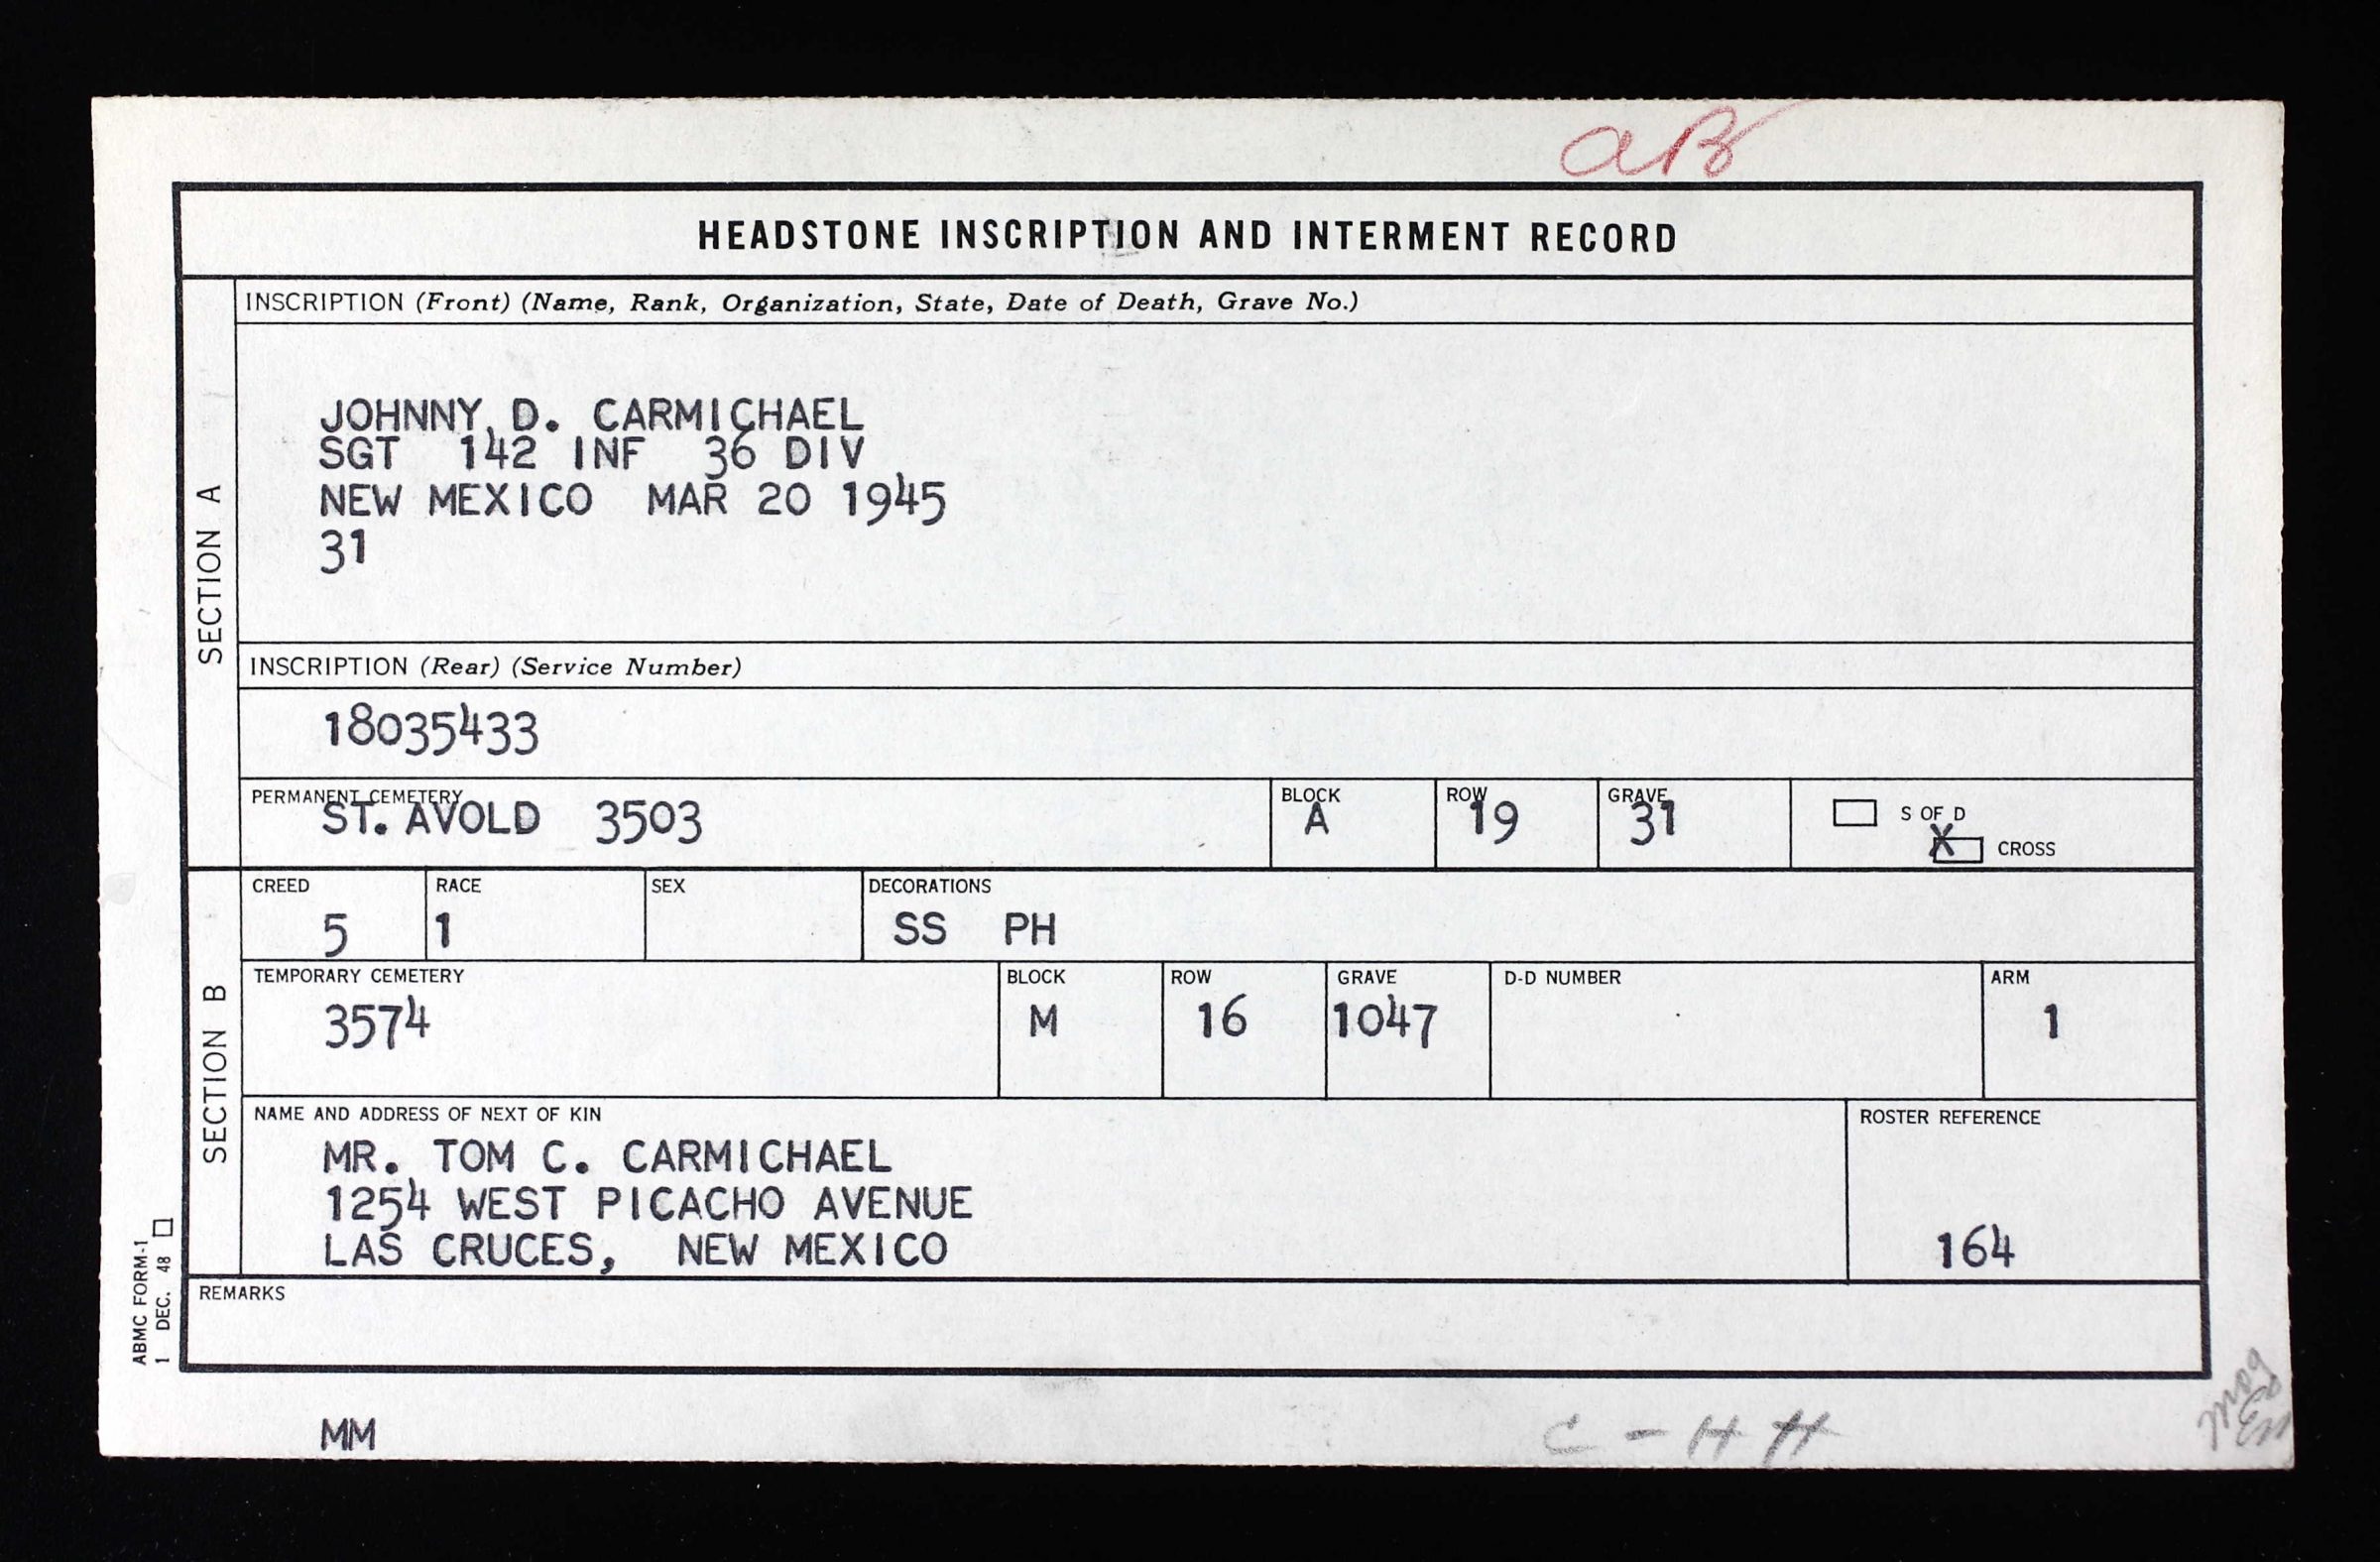 aB
HEADSTONE INSCRIPTION AND INTERMENT RECORD
SECTION A
INSCRIPTION (Front) (Name, Rank, Organization, State, Date of Death, Grave No.)
JOHNNY D. CARMICHAEL
SGT 142 INF 36 DIV
NEW MEXICO MAR 20 1945
31
INSCRIPTION (Rear) (Service Number)
18035433
PERMANENT CEMETERY
ST. AVOLD 3503
BLOCK
A
ROW
19
GRAVE
31
S OF D
X CROSS
SECTION B
CREED
5
RACE
1
SEX
DECORATIONS
SS PH
TEMPORARY CEMETERY
3574
BLOCK
M
ROW
16
GRAVE
1047
D-D NUMBER
ARM
1
NAME AND ADDRESS OF NEXT OF KIN
MR. TOM C. CARMICHAEL
1254 WEST PICACHO AVENUE
LAS CRUCES, NEW MEXICO
ROSTER REFERENCE
164
REMARKS
ABMC FORM-1
1 DEC. 48
MM
C - H H